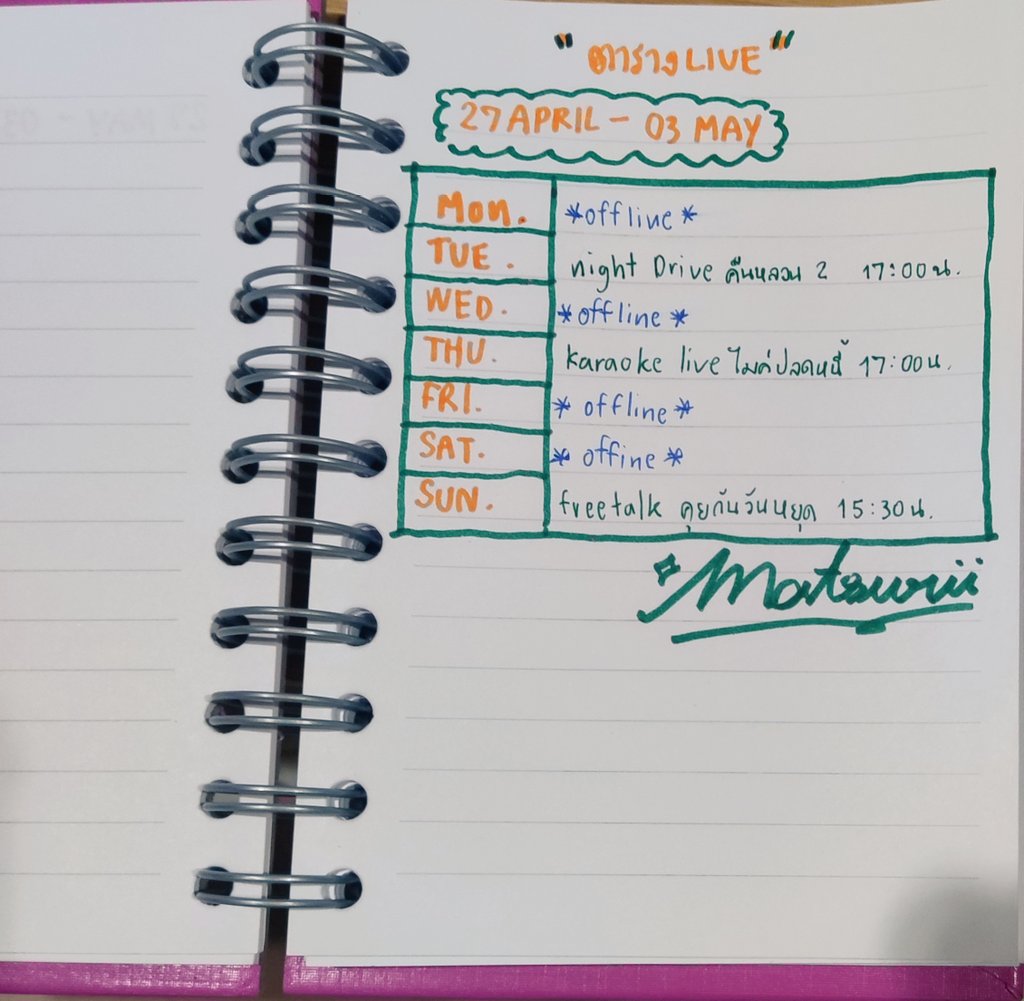 "ตารางLIVE"
27 APRIL - 03 MAY
Mon. *offline*
TUE. night Drive คืนหลอน 2 17:00น.
WED. *offline*
THU. karaoke live ไมค์ปลดหนี้ 17:00น.
FRI. *offline*
SAT. *offine*
SUN. freetalk คุยกันวันหยุด 15:30น.
Matsurii